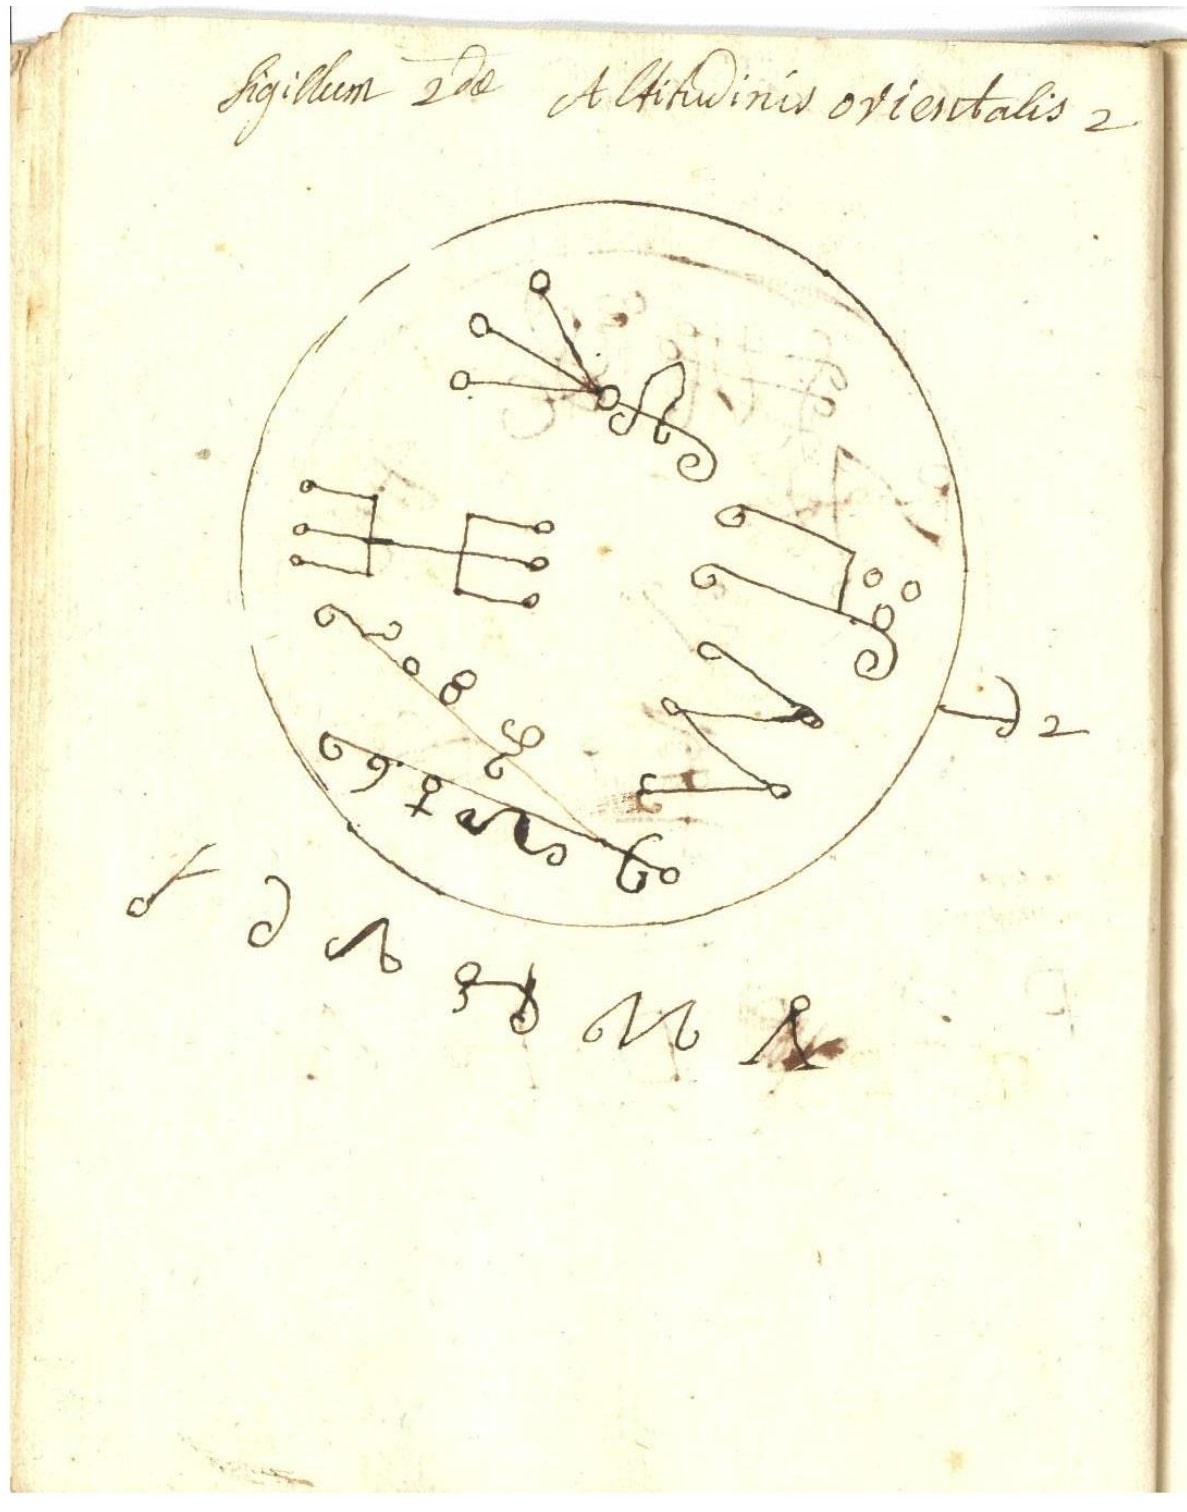 Sigillum 2dæ Altitudinis orientalis 2
2